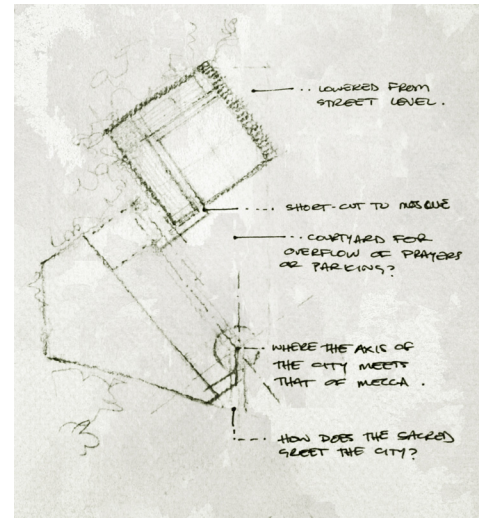 LOWERED FROM
STREET LEVEL.
SHORT-CUT TO MOSQUE
COURTYARD FOR
OVERFLOW OF PRAYERS
OR PARKING?
WHERE THE AXIS OF
THE CITY MEETS
THAT OF MECCA.
HOW DOES THE SACRED
GREET THE CITY?